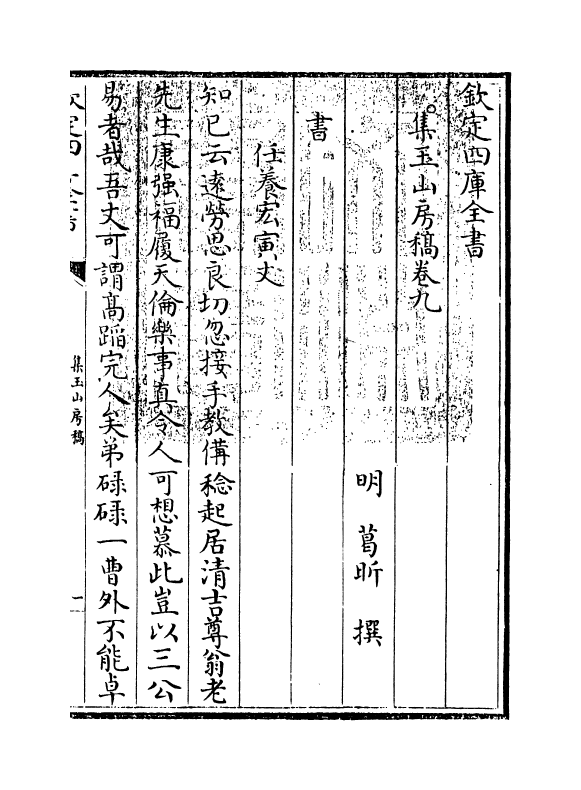 欽定四庫全書
集玉山房稿卷九
明 葛昕 撰
書
任養宏寅丈
知已云遠勞思良切忽接手教備稔起居清吉尊翁老
先生康强福履天倫樂事真令人可想慕此豈以三公
易者哉吾丈可謂髙蹈完人矣弟碌碌一曹外不能卓
欽定四庫全書
集玉山房稿
一